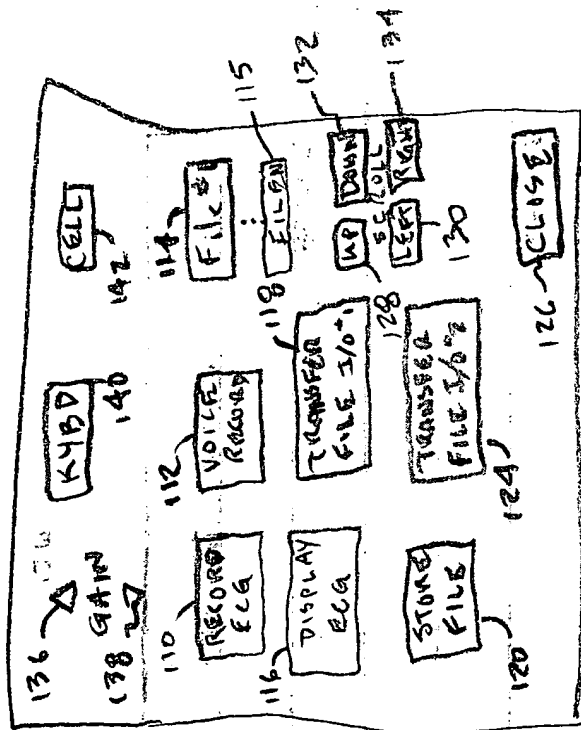 136
GAIN
138
KYBD
140
CELL
142
110
RECORD
ECG
112
VOICE
RECORD
114
File #
115
FILE N
116
DISPLAY
ECG
118
TRANSFER
FILE I/O #1
128
UP
DOWN
132
SCROLL
LEFT
RIGHT
130
134
STORE
FILE
120
TRANSFER
FILE I/O #2
124
126
CLOSE